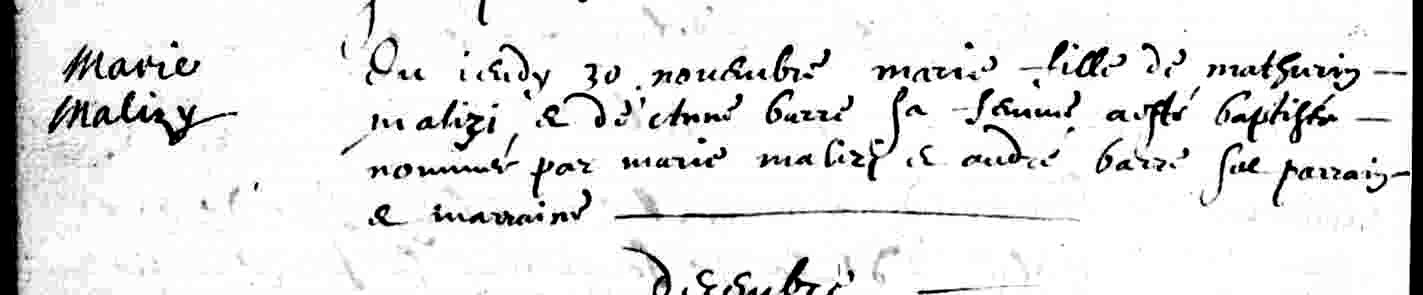 Marie
Malizy
Du ieudy 30 nouembre marie fille de mathurin
malizi & de etnne barre sa femme a esté baptisée
nommée par marie malizi & andre barre ses parrain
& marraine
decembre